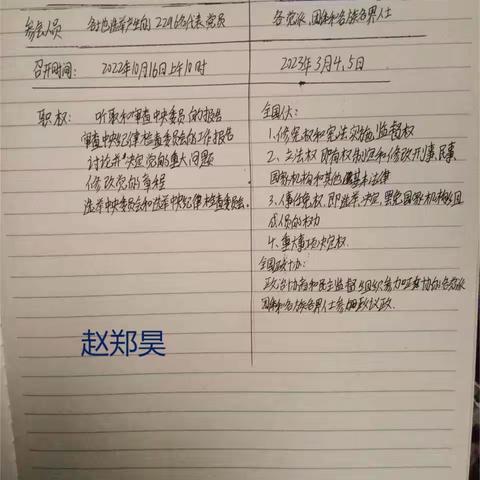 参会人员 各地选举产生的2296名代表党员 各党派、团体和各族各界人士
召开时间: 2022年10月16日上午10时 2023年3月4、5日
职权: 听取和审查中央委员会的报告
审查中央纪律检查委员会的工作报告
讨论并决定党的重大问题
修改党的章程
选举中央委员会和选举中央纪律检查委员会
全国人大:
1、修宪权和宪法实施监督权
2、立法权 即有权制定和修改刑事、民事、
国家机构和其他基本法律
3、人事任免权,即选举、决定、罢免国家机构组
成员的权力
4、重大事项决定权.
全国政协:
政治协商和民主监督 组织参加政协的各党派
团体和各族各界人士参政议政.
赵郑昊